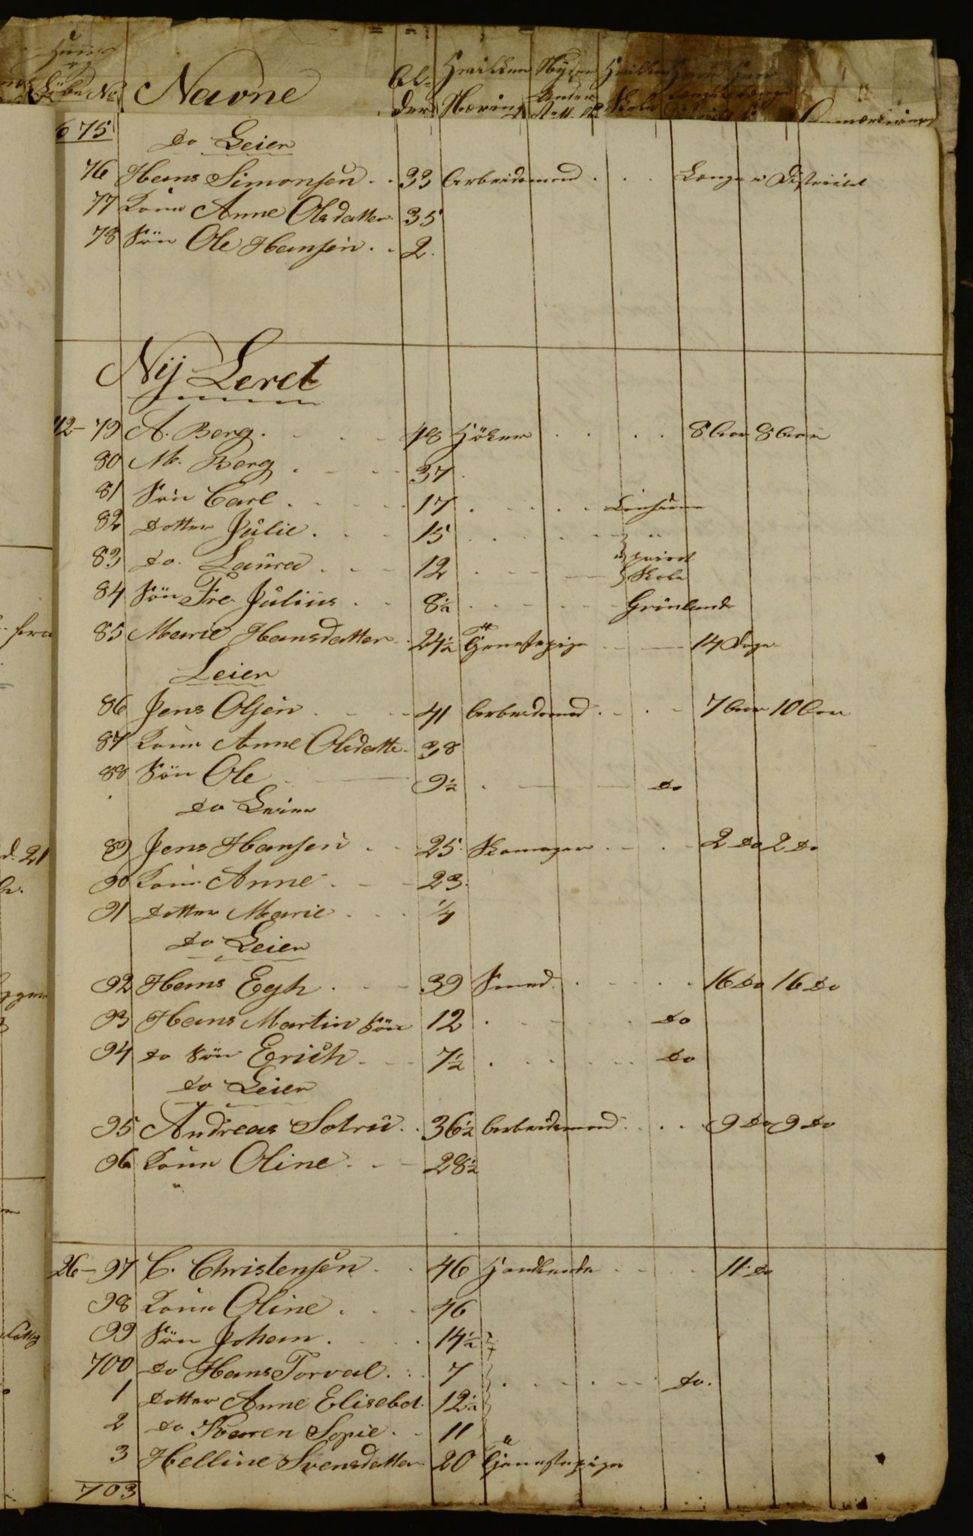 Navne Al- Hvilken Hvilken
Løbe No der Næring Anmærkninger
675
do Leier
76 Hans Simonsen 33 Arbeidsmand Længe i Districtet
77 Kone Anne Olsdatter 35
78 Søn Ole Hansen 2
Nij Leret
12 - 79 A. Berg 48 Høker 8 Aar 8 Aar
80 M. Berg 37
81 Søn Carl 17
82 Datter Julie 15
83 do Laura 12 privat Skole
84 Søn Fre. Julius 8½ Grünlands
85 Marie Hansdatter 24½ Tjenestepige 14 Dage
Leier
86 Jens Olsen 41 Arbeidsmand 7 Aar 10 Aar
87 Kone Anne Olsdatter 38
88 Søn Ole 9½ do
do Leier
89 Jens Hansen 25 Skomager 2 do 2 do
90 Kone Anne 23
91 Datter Marie ¼
do Leier
92 Hans Egh 39 Smed 16 do 16 do
93 Hans Martin Søn 12 do
94 do Søn Erich 7½ do
do Leier
95 Andreas Solru 36½ Arbeidsmand 9 do 9 do
96 Kone Oline 28½
26 - 97 C. Christensen 46 Handlende 11 do
98 Kone Oline 46
99 Søn Johan 14½
700 do Hans Torval 7 do
1 Datter Anne Elisebet 12½
2 do Karen Sopie 11
3 Helline Svensdatter 20 Tjenestepige
703